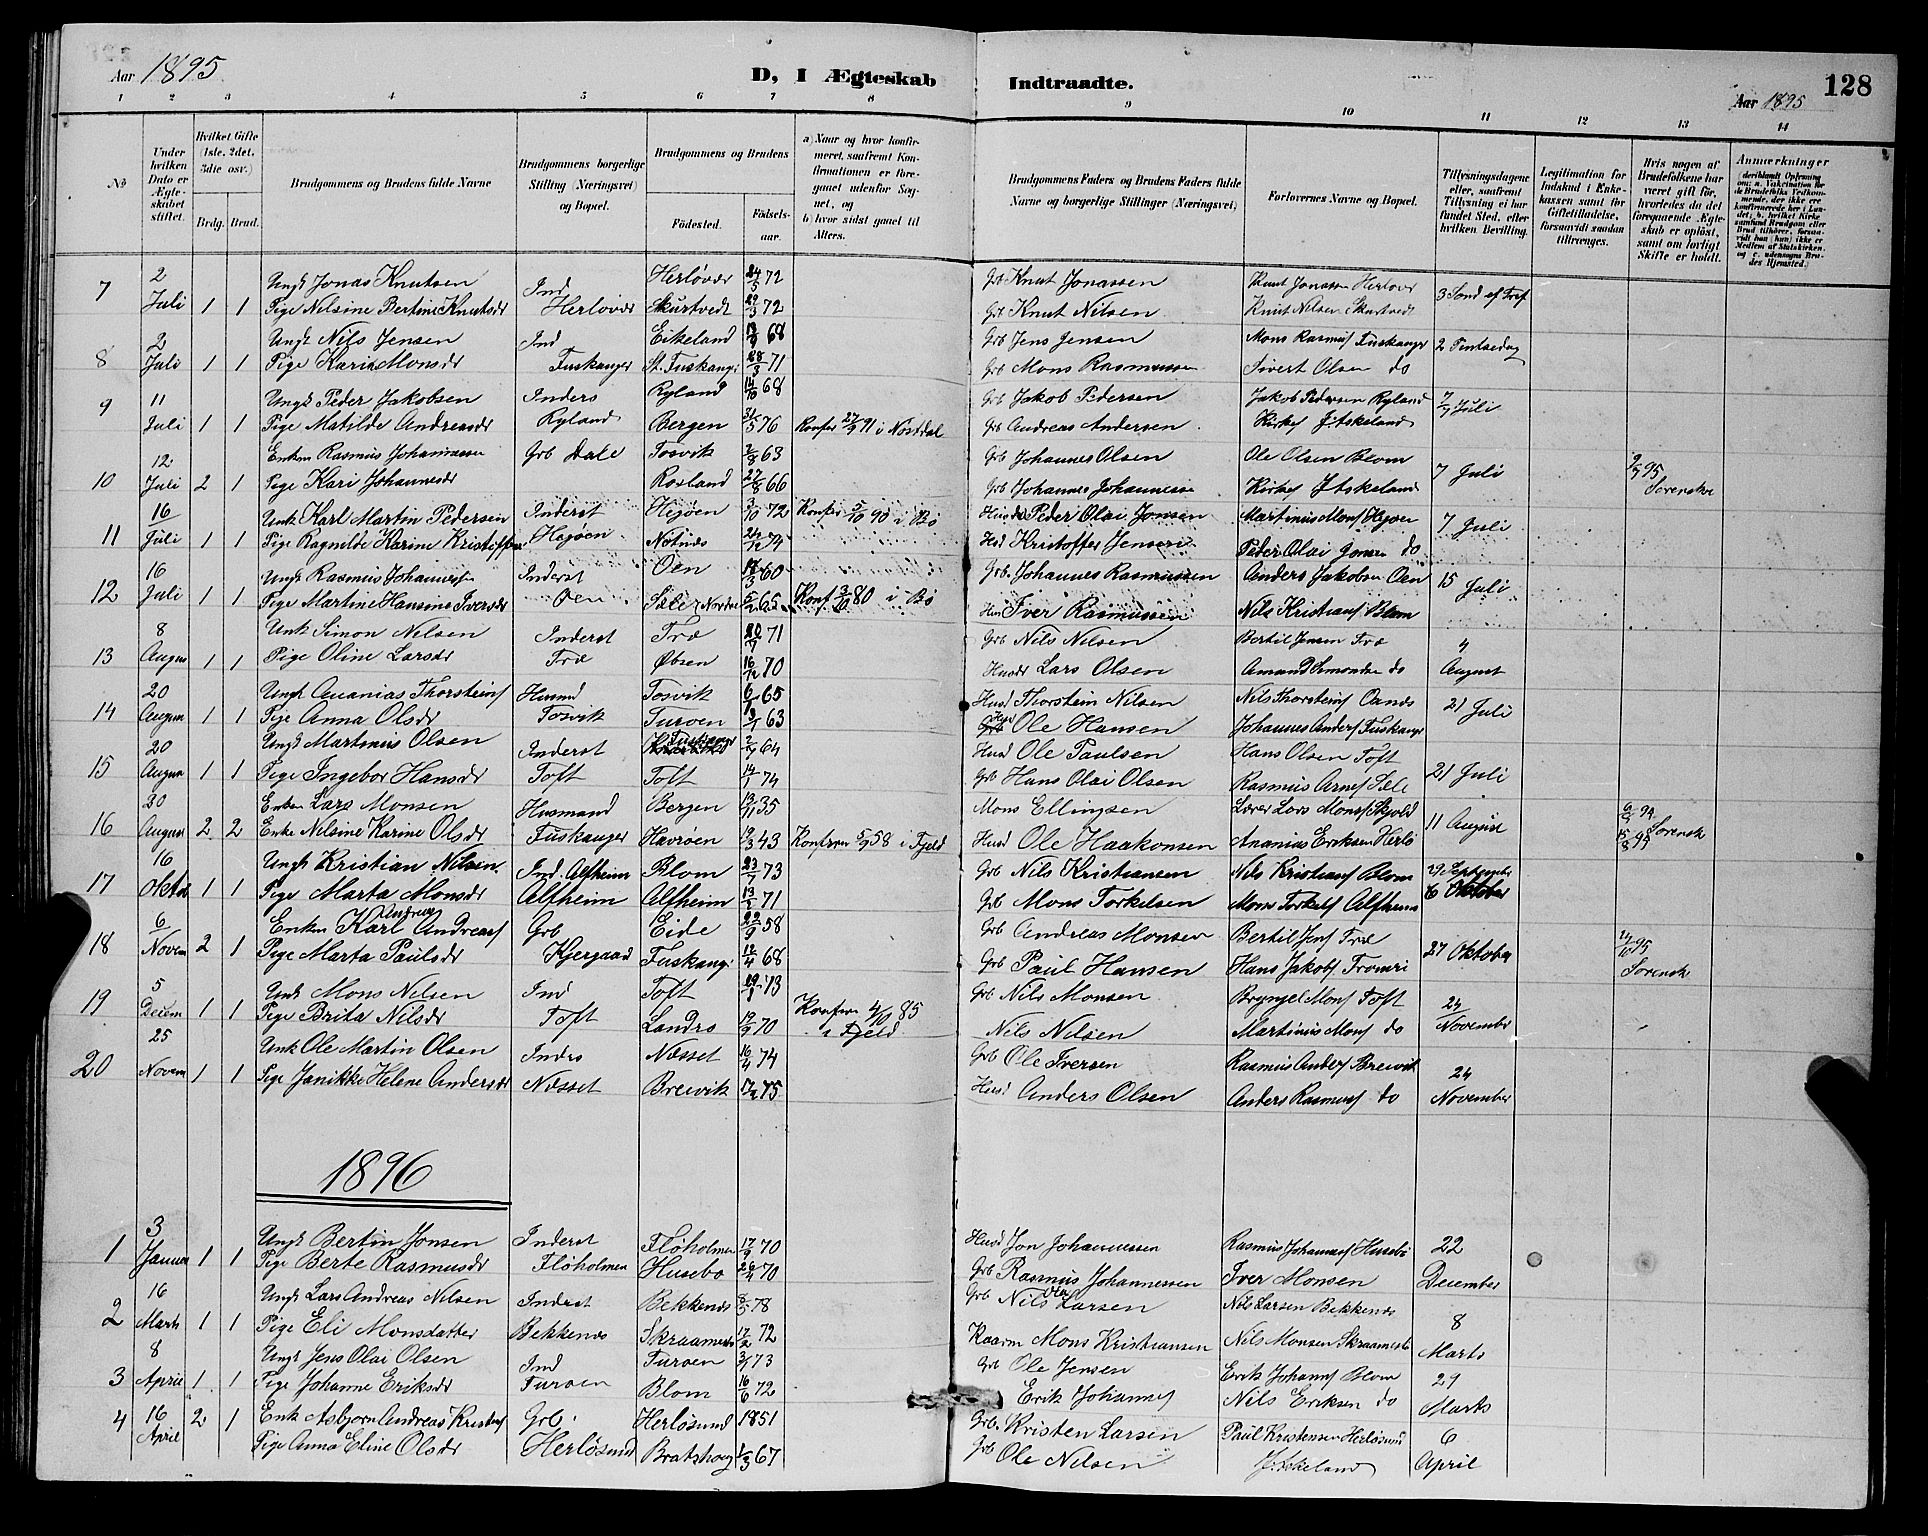 Aar 1895.
D, I Ægteskab
Indtraadte.
Aar 1895
128
1 2 3 4 5 6 7 8 9 10 11 12 13 14
No
Under hvilken Dato er Ægteskabet stiftet.
Hvilket Gifte (1ste, 2det, 3die osv.)
Brdg. Brud.
Brudgommens og Brudens fulde Navne
Brudgommens borgerlige Stilling (Næringsvei) og Bopæl.
Brudgommens og Brudens
Födested.
Födselsaar.
a) Naar og hvor konfirmeret, saafremt Konfirmationen er foregaaet udenfor Sognet, og
b) hvor sidst gaaet til Alters.
Brudgommens Faders og Brudens Faders fulde Navne og borgerlige Stillinger (Næringsvei)
Forlovernes Navne og Bopæl.
Tillysningsdagene eller, saafremt Tillysning ei har fundet Sted, efter hvilken Bevilling.
Legitimation for Indskud i Enkekassen samt for Giftetilladelse, forsaavidt saadan tiltrænges.
Hvis nogen af Brudefolkene har været gift før, hvorledes da det foregaaende Ægteskab er oplöst, samt om lovligt Skifte er holdt.
Anmærkninger
7 2 Juli 1 1 Ungk Jonas Knutsen Ind Herløver Herløver 24/5 72 Grb Knut Jonassen Knut Jonassen Herløver 3 Sønd ef Tref
Pige Nilsine Bertine Knutsdr Skurtvedt 22/3 72 Grb Knut Nilsen Knut Nilsen Skurtvedt
8 2 Juli 1 1 Ungk Nils Jensen Ind Fuskanger Eikeland 68 Grb Jens Jensen Mons Rasmus Fuskanger 2 Pintsedag
Pige Kari Monsdr St. Fuskang 28/3 71 Grb Mons Rasmussen Sivert Olsen do
9 11 Juli 1 1 Ungk Peder Jakobsen Inders Ryland Ryland 14/10 68 Grb Jakob Pedersen Jakob Pedersen Ryland 7/7 Juli
Pige Matilde Andreasdr Bergen 31/5 76 Konfir 27/9 91 i Nöstdal Grb Andreas Andersen Kirkes J Askeland
10 12 Juli 2 1 Enkm Rasmus Johannessen Grb Dale Tosvik 2/8 63 Grb Johannes Olsen Ole Olsen Blom 7 Juli 9/7 95 Sorenskr
Pige Kari Johannesdr Rosland 27/8 66 Grb Johannes Johannesse Kirkes J Askeland
11 16 Juli 1 1 Unk Karl Martin Pedersen Inderst Hegøen Hegöen 3/10 72 Konfir 5/10 90 i Bö Husd Peder Olai Jonsen Martinus Mons Hegøen 7 Juli
Pige Ragnilde Karine Kristoffer Nötnes 24/12 74 Hsd Kristoffer Jensen Peder Olai Jonsen do
12 16 Juli 1 1 Ungk Rasmus Johannes Inderst Oen Oen 60 Grb. Johannes Rasmussen Anders Jakobsen Oen 15 Juli
Pige Martine Hansine Iversdr Sæle Nordre 65 Konf 3/10 80 i Bö Hus Iver Rasmussen Nils Kristians Blom
13 8 Augus 1 1 Unk Simon Nilsen Inderst Træ Træ 20/7 71 Grb Nils Nilsen Bertil Jensen Træ 4 August
Pige Oline Larsdr Øbsen 16/12 70 Husdr Lars Olsen Amand Simondsen do
14 20 Augus 1 1 Ungk Ananias Thorsteins Husmd Tosvik Tosvik 65 Husd Thorstein Nilsen Nils Thorsteins Oands 21 Juli
Pige Anna Olsdr Turoen 63 Husd Ole Hansen Johannes Anders Fuskanger
15 20 Augus 1 1 Ungk Martinus Olsen Inderst Toft Fuskanger 64 Husd Ole Paulsen Hans Olsen Toft 21 Juli
Pige Ingebor Hansdr Toft 14/1 74 Grb Hans Olai Olsen Rasmus Arnes Sæle
16 20 August 2 2 Enkm Lars Monsen Husmand Fuskanger Bergen 13/11 35 Mons Ellingsen Lærer Lars Mons Skjold 11 August 94 Sorensk
Enke Nelsine Karine Olsdr Havröen 12/3 43 Konfirm 5/9 58 i Fjeld Husd Ole Haakonsen Ananias Eriksen Herlö 15/8 94
17 16 Oktob 1 1 Ungk Kristian Nilsen. Ind. Alfheim Alfheim Blom 23/7 73 Grb Nils Kristiansen Nils Kristians Blom 29 September
Pige Marta Monsdr Alfheim 71 Grb Mons Torkelsen Mons Torkels Alfheim 6 Oktober
18 6 Novem 2 1 Enkm Karl Andreas Grb Kjergaard Eide 22/9 58 Grb Andreas Monsen Bertil Jens Træ 27 Oktober 95 Sorensk
Pige Marta Paulsdr Fuskang 12/4 68 Grb Paul Hansen Hans Jakobs Tromri
19 5 Decem 1 1 Unk Mons Nilsen Ind Toft Toft 73 Konfirm 4/10 85 i Fjeld Grb Nils Monsen Bryngel Mons Toft 24 November
Pige Brita Nilsdr Landro 12/9 70 Nils Nilsen Martinus Mons do
20 25 Novem 1 1 Unk Ole Martin Olsen Inders Næsset Næsset 16/4 74 Grb Ole Iversen Rasmus Anders Breivik 24 November
Pige Janikke Helene Andersdr Breivik 75 Husd Anders Olsen Anders Rasmus do
1896
1 3 Januar 1 1 Ungk Bertin Jonsen Inderst Flöholmen Flöholmen 17/9 70 Husd Jon Johannessen Rasmus Johannes Husebö 22 December
Pige Berte Rasmusdr Husebö 26/4 70 Grb Rasmus Johannessen Iver Monsen
2 16 Marts 1 1 Ungk Lars Andreas Nilsen Inderst Bekkenes Bekkenes 8/5 78 Grb Nils Olai Larsen Nils Larsen Bekkenes 8 Marts
Pige Eli Monsdatter Skraamestö 17/2 72 Kaarm Mons Kristiansen Nils Monsen Skraamestö
3 8 April 1 1 Ungk Jens Olai Olsen Ind Turoen Turoen 73 Grb Ole Jensen Erik Johans Blom 29 Marts
Pige Johanne Eriksdr Blom 16/6 72 Erik Johannes Nils Eriksen do
4 16 April 2 1 Enk Asbjorn Andreas Kristens Grb. Herlösund Herlösund 1851 Grb. Kristen Larsen Paul Kristensen Herlösund 6 April
Pige Anna Eline Olsdr Bratshoug 1/3 67 Grb Ole Nilsen J. Askeland